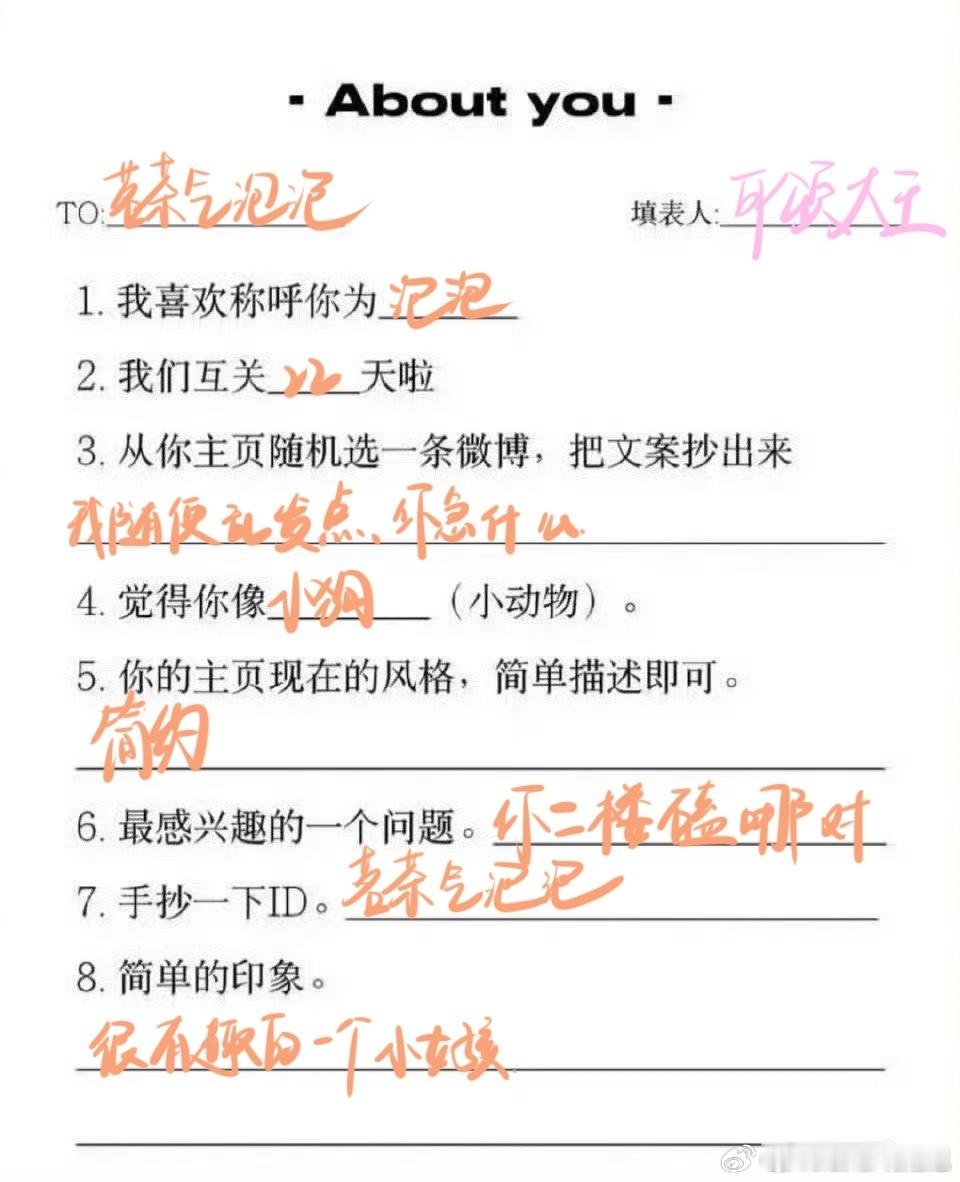 - About you -
TO:苦茶气泡泡 填表人:可颂大王
1. 我喜欢称呼你为泡泡
2. 我们互关 天啦
3. 从你主页随机选一条微博，把文案抄出来
我随便乱发点、你急什么.
4. 觉得你像小狗（小动物）。
5. 你的主页现在的风格，简单描述即可。
简约
6. 最感兴趣的一个问题。你二楼磕哪对
7. 手抄一下ID。苦茶气泡泡
8. 简单的印象。
很有趣的一个小女孩.